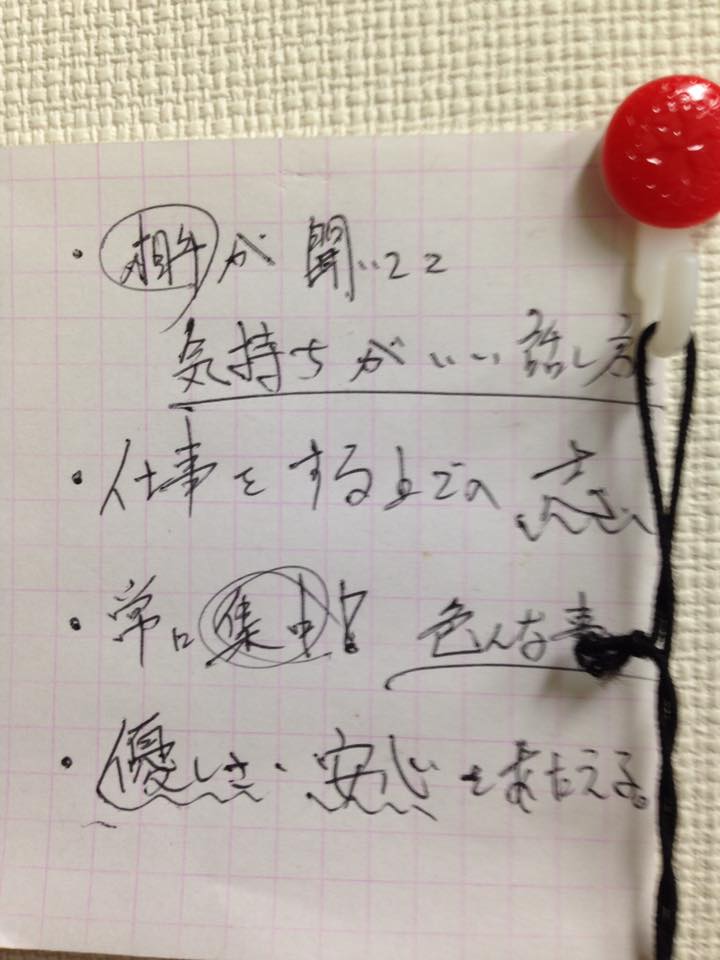 ・相手が聞いてて
気持ちがいい話し方
・仕事をする上での志
・常に集中! 色んな事
・優しさ・安心をあたえる。